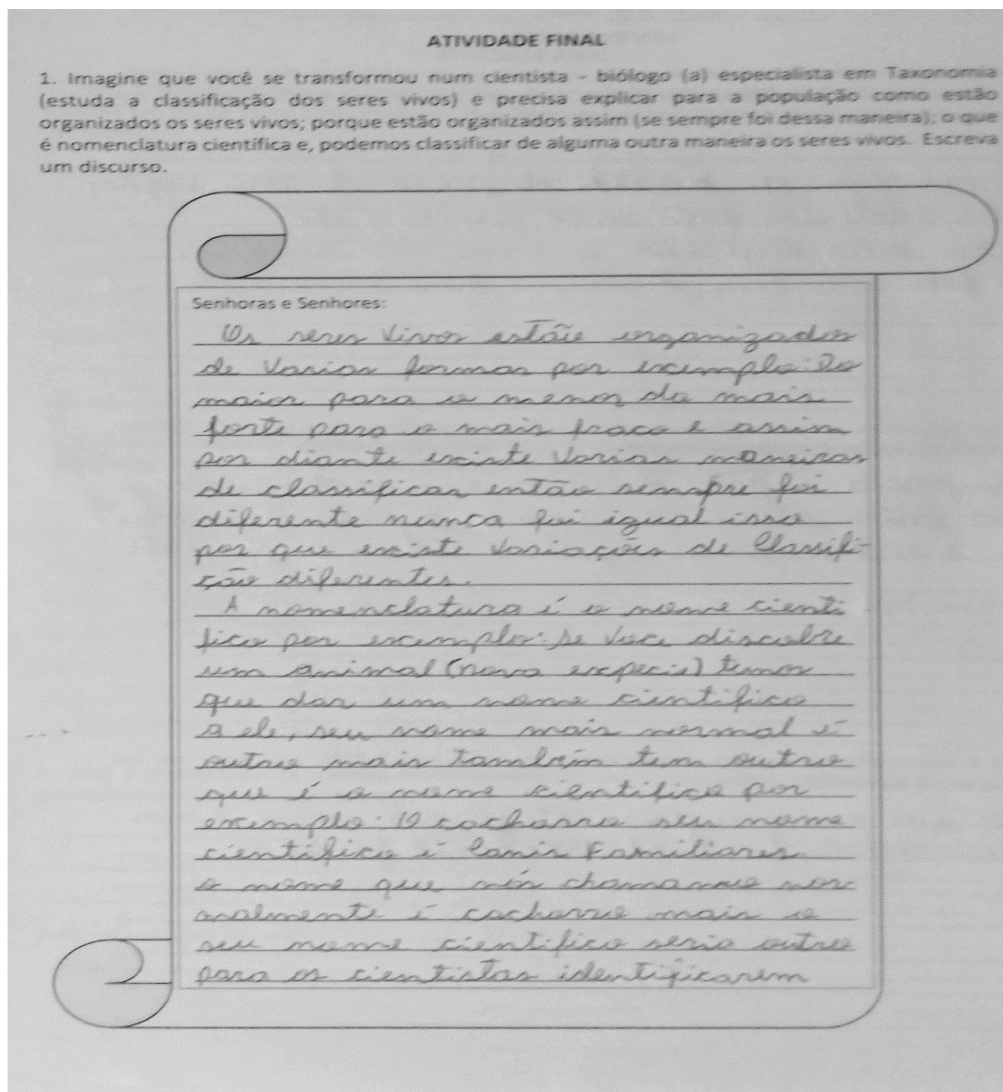 ATIVIDADE FINAL
1. Imagine que você se transformou num cientista - biólogo (a) especialista em Taxonomia
(estuda a classificação dos seres vivos) e precisa explicar para a população como estão
organizados os seres vivos; porque estão organizados assim (se sempre foi dessa maneira); o que
é nomenclatura científica e, podemos classificar de alguma outra maneira os seres vivos. Escreva
um discurso.
Senhoras e Senhores:
Os seres Vivos estãie organizados
de Varias formas por excemplo: Do
maior para o menor do mais
forte para o mais fraco e assim
por diante existe Varias maneiras
de classificar então sempre foi
diferente nunca foi igual isso
por que existe Variações de Classifi-
ção diferentes.
A nomenclatura é o nome cienti
fico por excemplo: se voce discobre
um animal (nova especie) temos
que dar um nome cientifico
a ele, seu nome mais normal é
outro mais também tem outro
que é o nome cientifico por
excemplo: O cachorro seu nome
cientifico é Canis Familiares
o nome que nós chamamos nor-
malmente é cachorro mais o
seu nome cientifico seria outro
para os cientistas identificarem